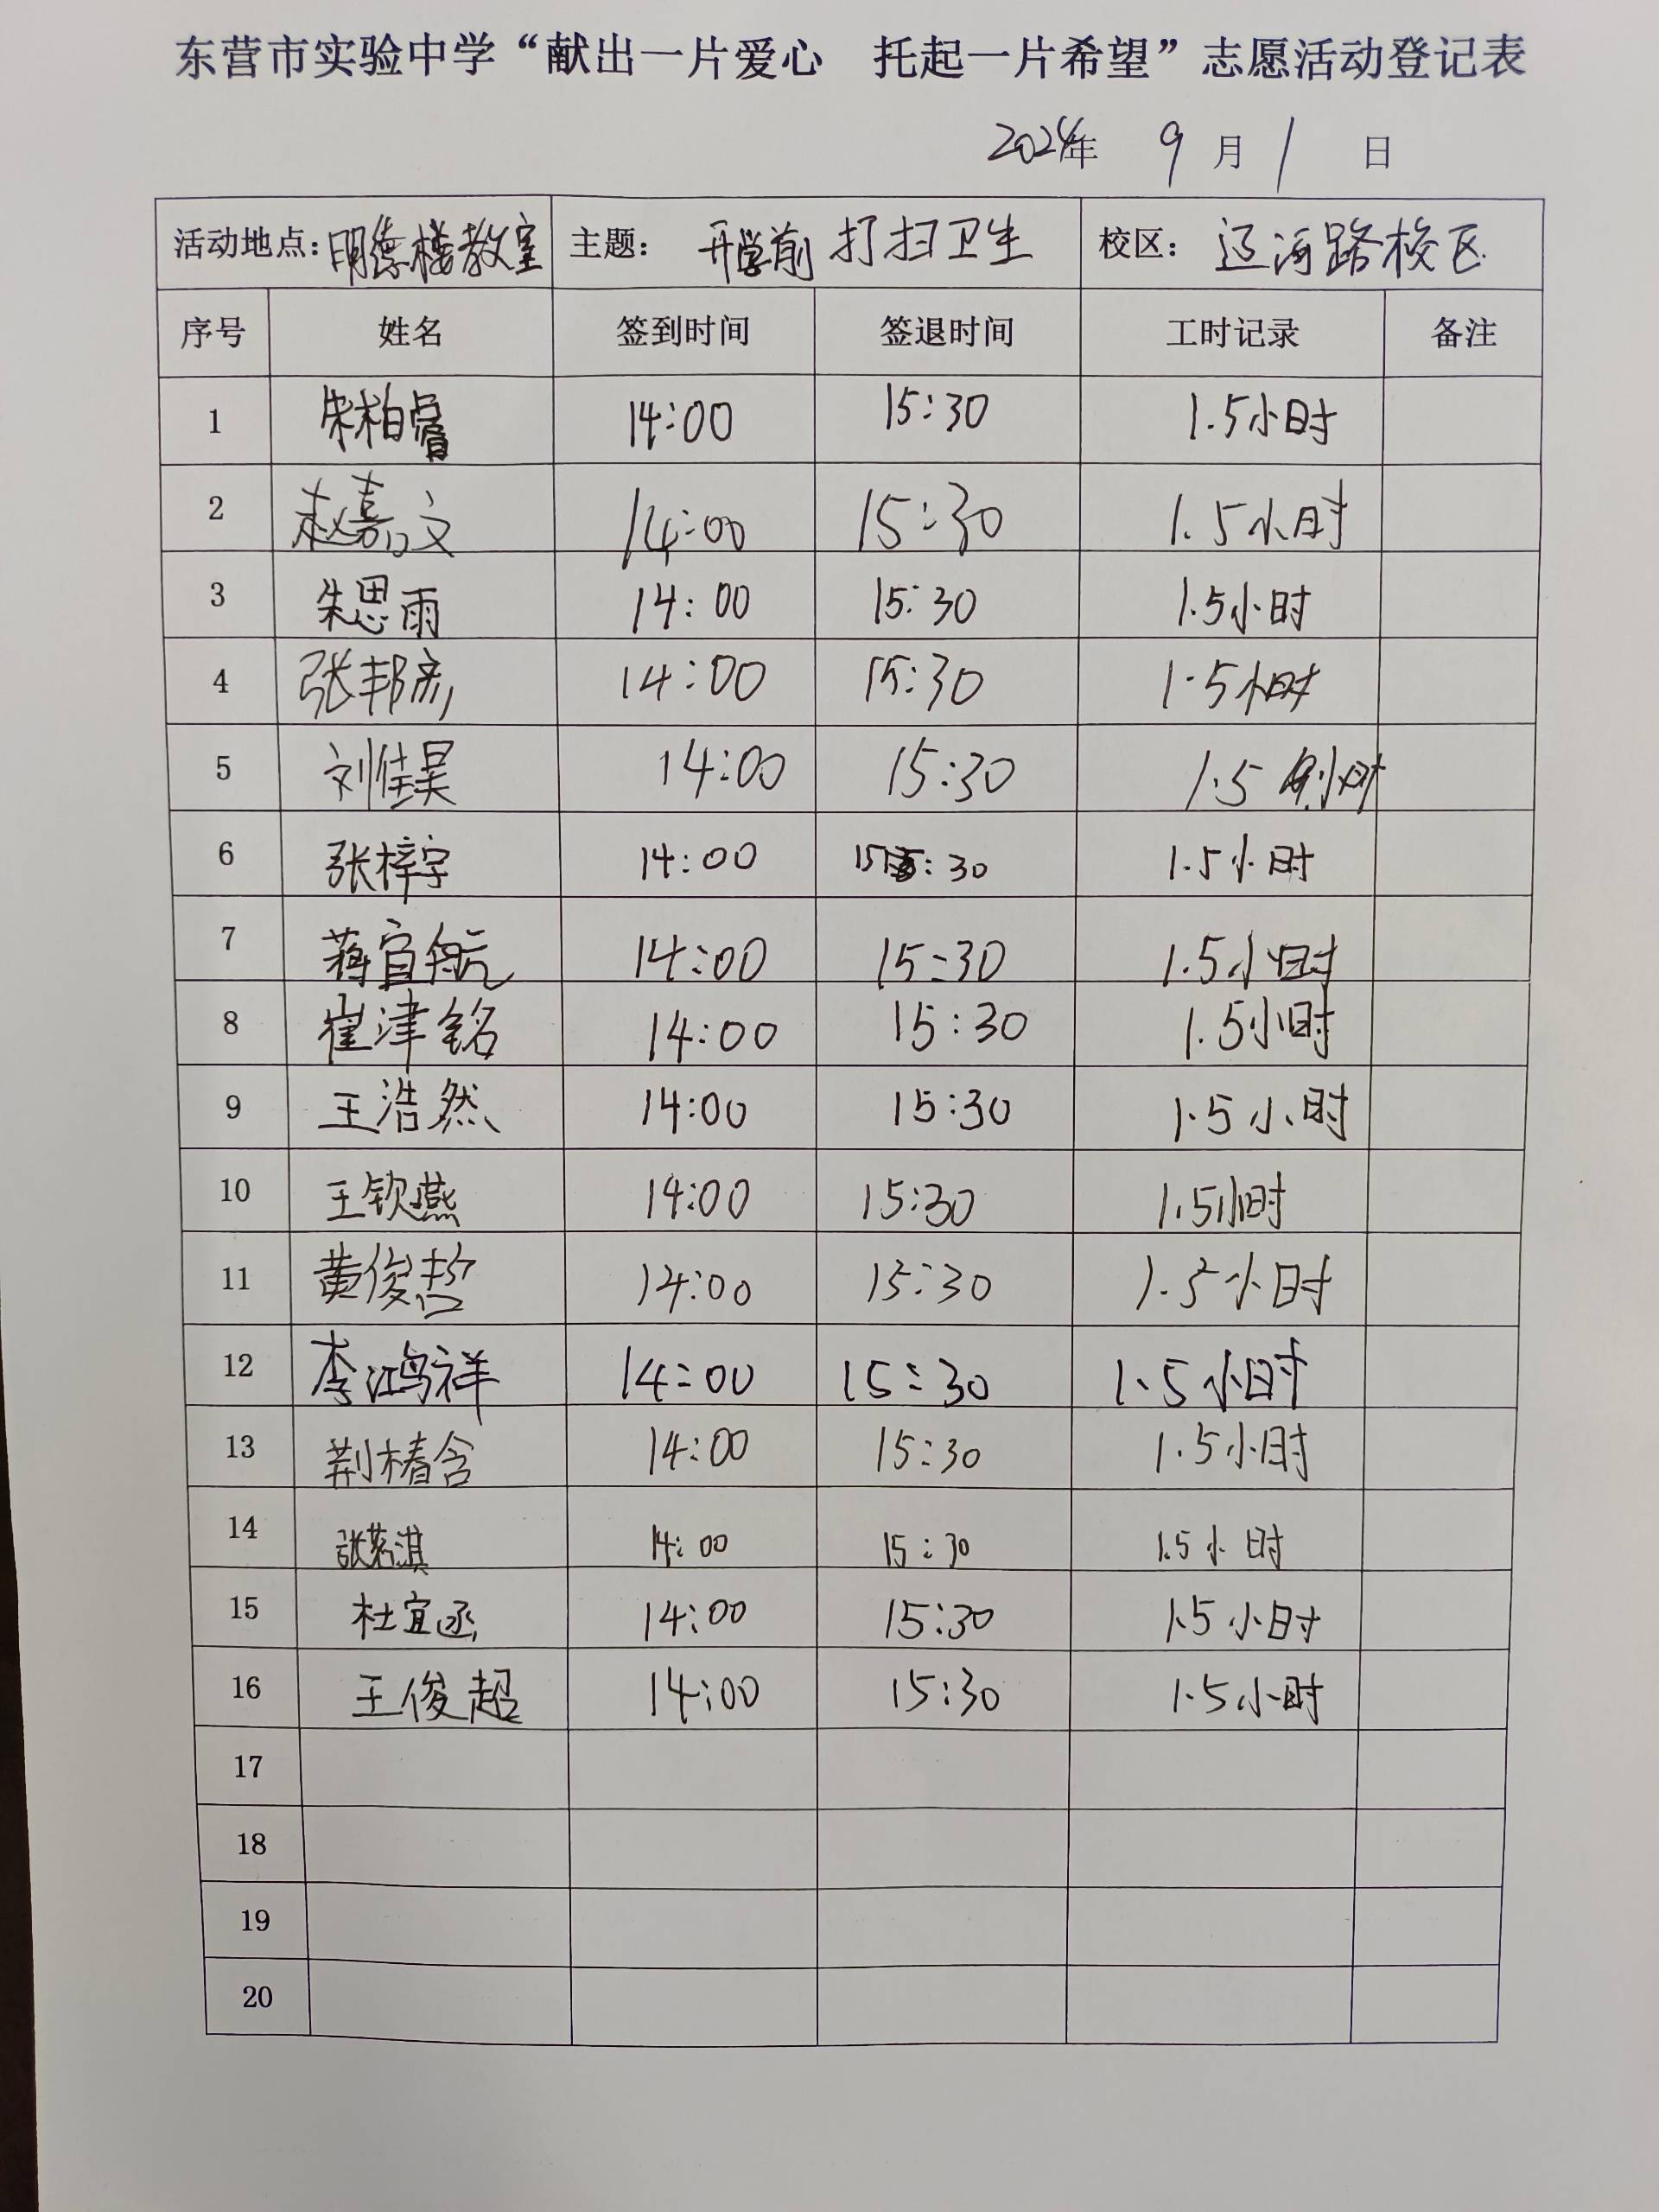 东营市实验中学“献出一片爱心 托起一片希望”志愿活动登记表
2024年 9 月 1 日
活动地点：明德楼教室 主题： 开学前打扫卫生 校区： 辽河路校区
序号 姓名 签到时间 签退时间 工时记录 备注
1 朱柏睿 14:00 15:30 1.5小时
2 赵嘉文 14:00 15:30 1.5小时
3 朱思雨 14:00 15:30 1.5小时
4 张邦彦 14:00 15:30 1.5小时
5 刘佳昊 14:00 15:30 1.5小时
6 张梓宇 14:00 15:30 1.5小时
7 蒋宜航 14:00 15:30 1.5小时
8 崔津铭 14:00 15:30 1.5小时
9 王浩然 14:00 15:30 1.5小时
10 王钦燕 14:00 15:30 1.5小时
11 黄俊哲 14:00 15:30 1.5小时
12 李鸿祥 14:00 15:30 1.5小时
13 荆椿含 14:00 15:30 1.5小时
14 张若淇 14:00 15:30 1.5小时
15 杜宜函 14:00 15:30 1.5小时
16 王俊超 14:00 15:30 1.5小时
17
18
19
20